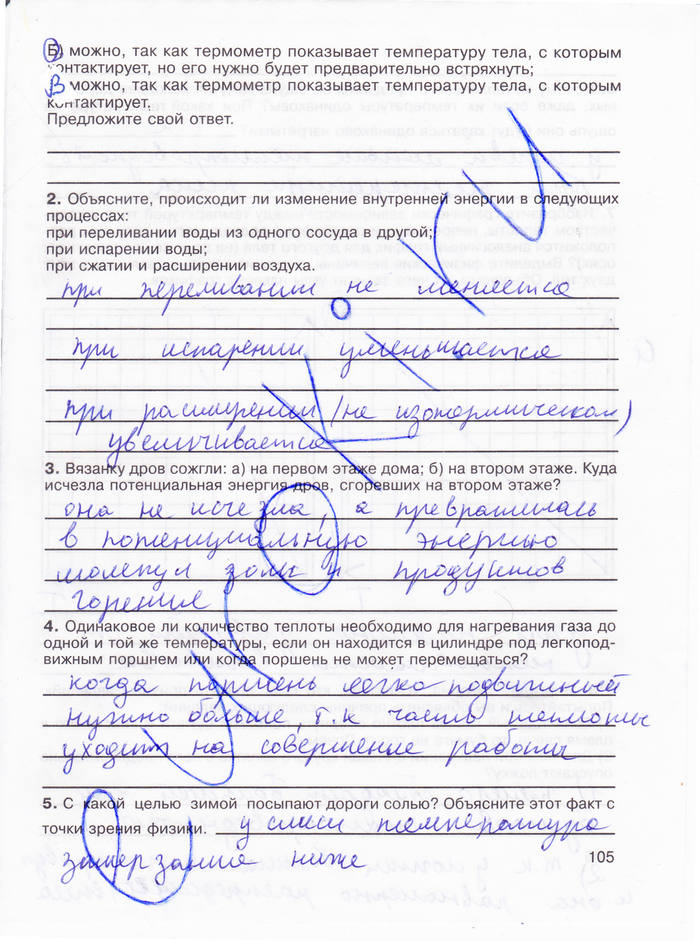 Б) можно, так как термометр показывает температуру тела, с которым
контактирует, но его нужно будет предварительно встряхнуть;
В можно, так как термометр показывает температуру тела, с которым
контактирует.
Предложите свой ответ.
2. Объясните, происходит ли изменение внутренней энергии в следующих
процессах:
при переливании воды из одного сосуда в другой;
при испарении воды;
при сжатии и расширении воздуха.
при переливании не меняется
при испарении уменьшается
при расширении (не изотермическом)
увеличивается
3. Вязанку дров сожгли: а) на первом этаже дома; б) на втором этаже. Куда
исчезла потенциальная энергия дров, сгоревших на втором этаже?
она не исчезла, а превратилась
в потенциальную энергию
молекул золы и продуктов
горения
4. Одинаковое ли количество теплоты необходимо для нагревания газа до
одной и той же температуры, если он находится в цилиндре под легкопод-
вижным поршнем или когда поршень не может перемещаться?
когда поршень легко подвижный
нужно больше, т.к часть теплоты
уходит на совершение работы
5. С какой целью зимой посыпают дороги солью? Объясните этот факт с
точки зрения физики. у смеси температура
замерзание ниже
105